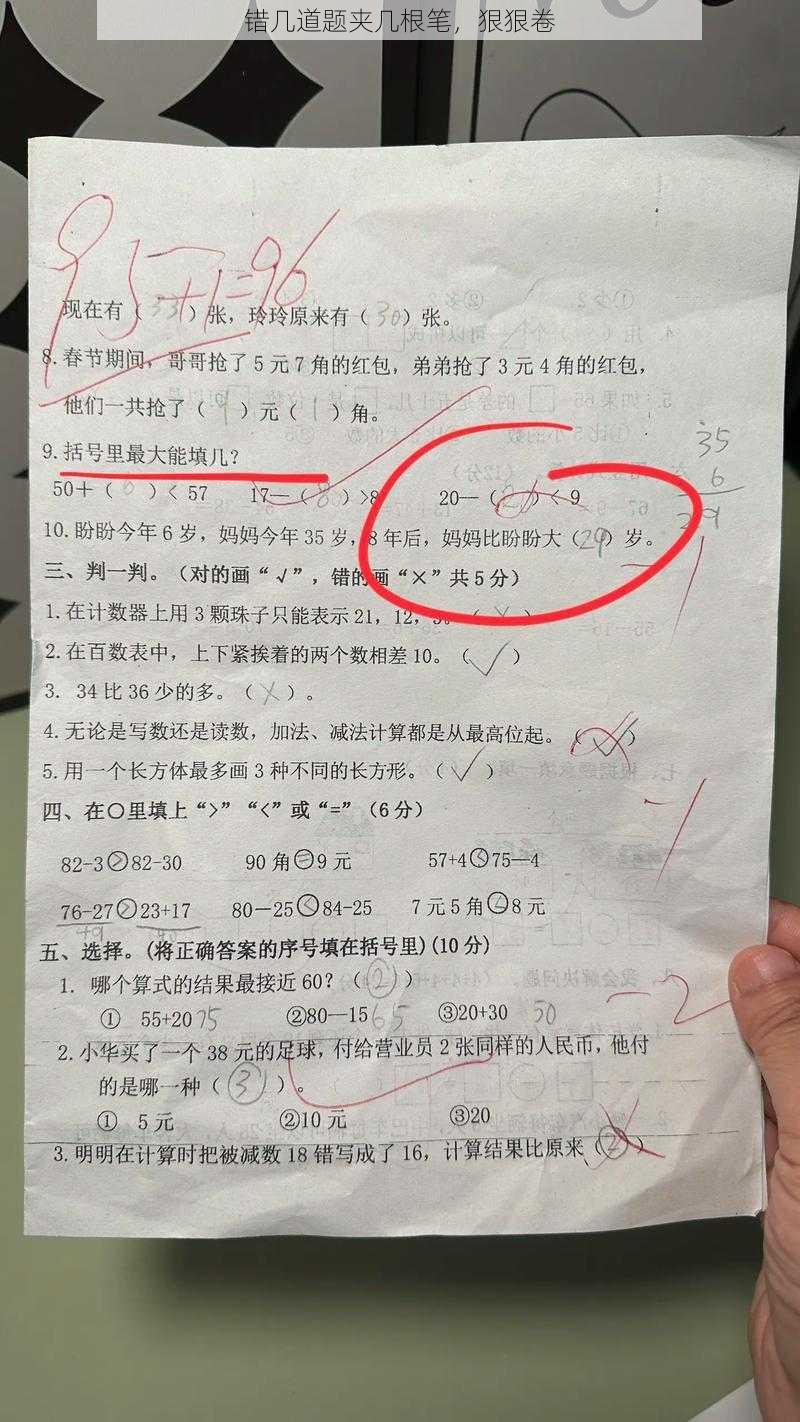 错几道题夹几根笔，狠狠卷
95+1=96
现在有（33）张，玲玲原来有（30）张。
8.春节期间，哥哥抢了5元7角的红包，弟弟抢了3元4角的红包，
他们一共抢了（9）元（1）角。
9.括号里最大能填几？
50＋（6）＜57 17—（8）>8 20—（）＜9
35
6
29
10.盼盼今年6岁，妈妈今年35岁，8年后，妈妈比盼盼大（29）岁。
-1
三、判一判。（对的画“√”，错的画“×”共5分）
1.在计数器上用3颗珠子只能表示21，12，3。（×）
2.在百数表中，上下紧挨着的两个数相差10。（√）
3. 34比36少的多。（×）。
4.无论是写数还是读数，加法、减法计算都是从最高位起。（√）
5.用一个长方体最多画3种不同的长方形。（√）
-1
四、在○里填上“>”“<”或“=”（6分）
82-3>82-30 90角=9元 57+4<75—4
76-27>23+17 80－25<84-25 7元5角<8元
49 40
五、选择。(将正确答案的序号填在括号里)(10分)
1. 哪个算式的结果最接近60？（②）
-2
① 55+20 75 ②80—15 65 ③20+30 50
2.小华买了一个38元的足球，付给营业员2张同样的人民币，他付
的是哪一种（③）。
① 5元 ②10元 ③20
3.明明在计算时把被减数18错写成了16，计算结果比原来（②）